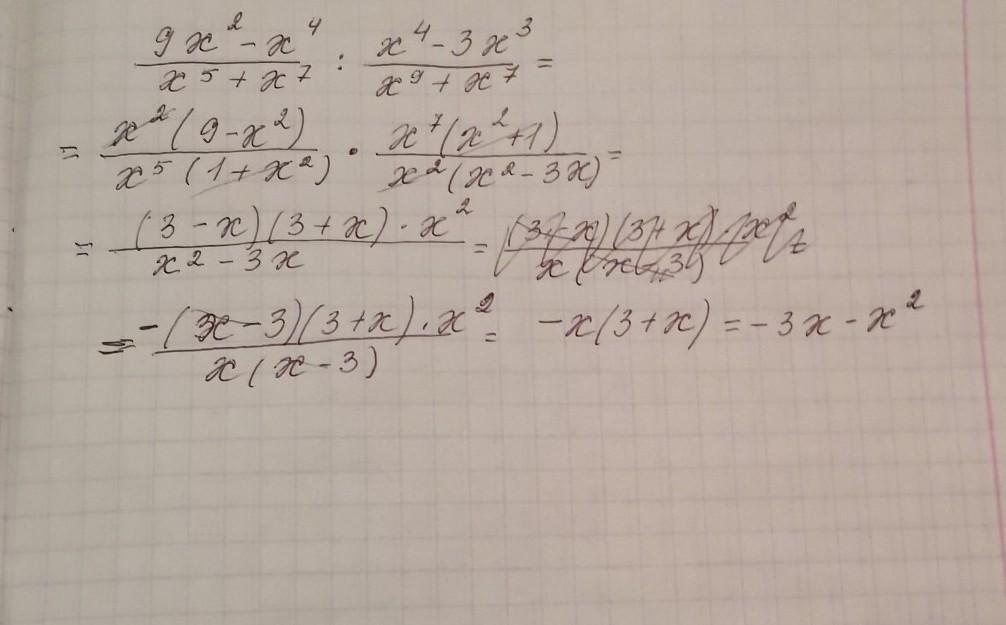 (9x² - x⁴)/(x⁵ + x⁷) : (x⁴ - 3x³)/(x⁹ + x⁷) =
= x²(9 - x²)/(x⁵(1 + x²)) · x⁷(x² + 1)/(x²(x² - 3x)) =
= (3 - x)(3 + x) · x²/(x² - 3x) = (3 - x)(3 + x) · x²/(x(x - 3))
= -(x - 3)(3 + x) · x²/(x(x - 3)) = -x(3 + x) = -3x - x²